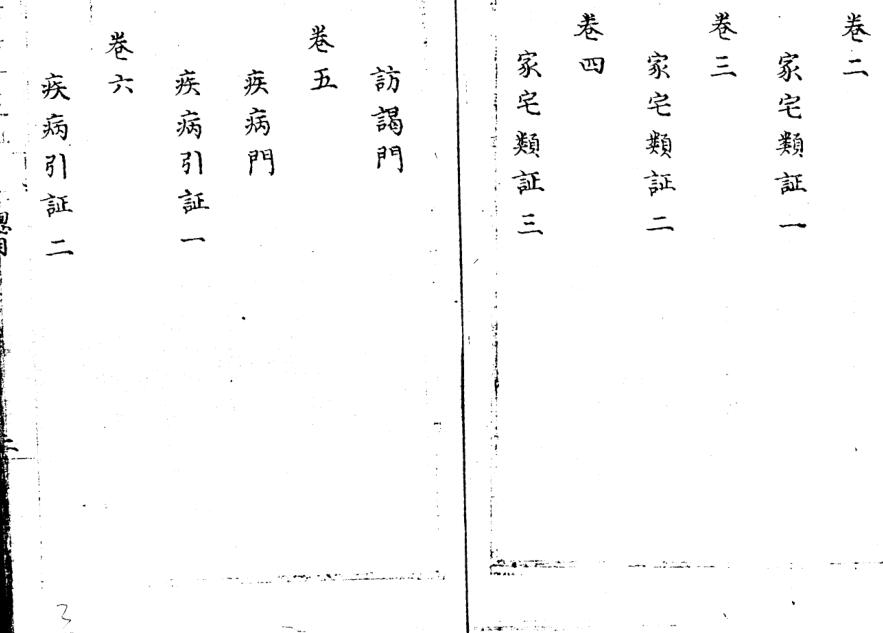 卷二
家宅類証一
卷三
家宅類証二
卷四
家宅類証三
訪謁門
卷五
疾病門
疾病引証一
卷六
疾病引証二
二
3